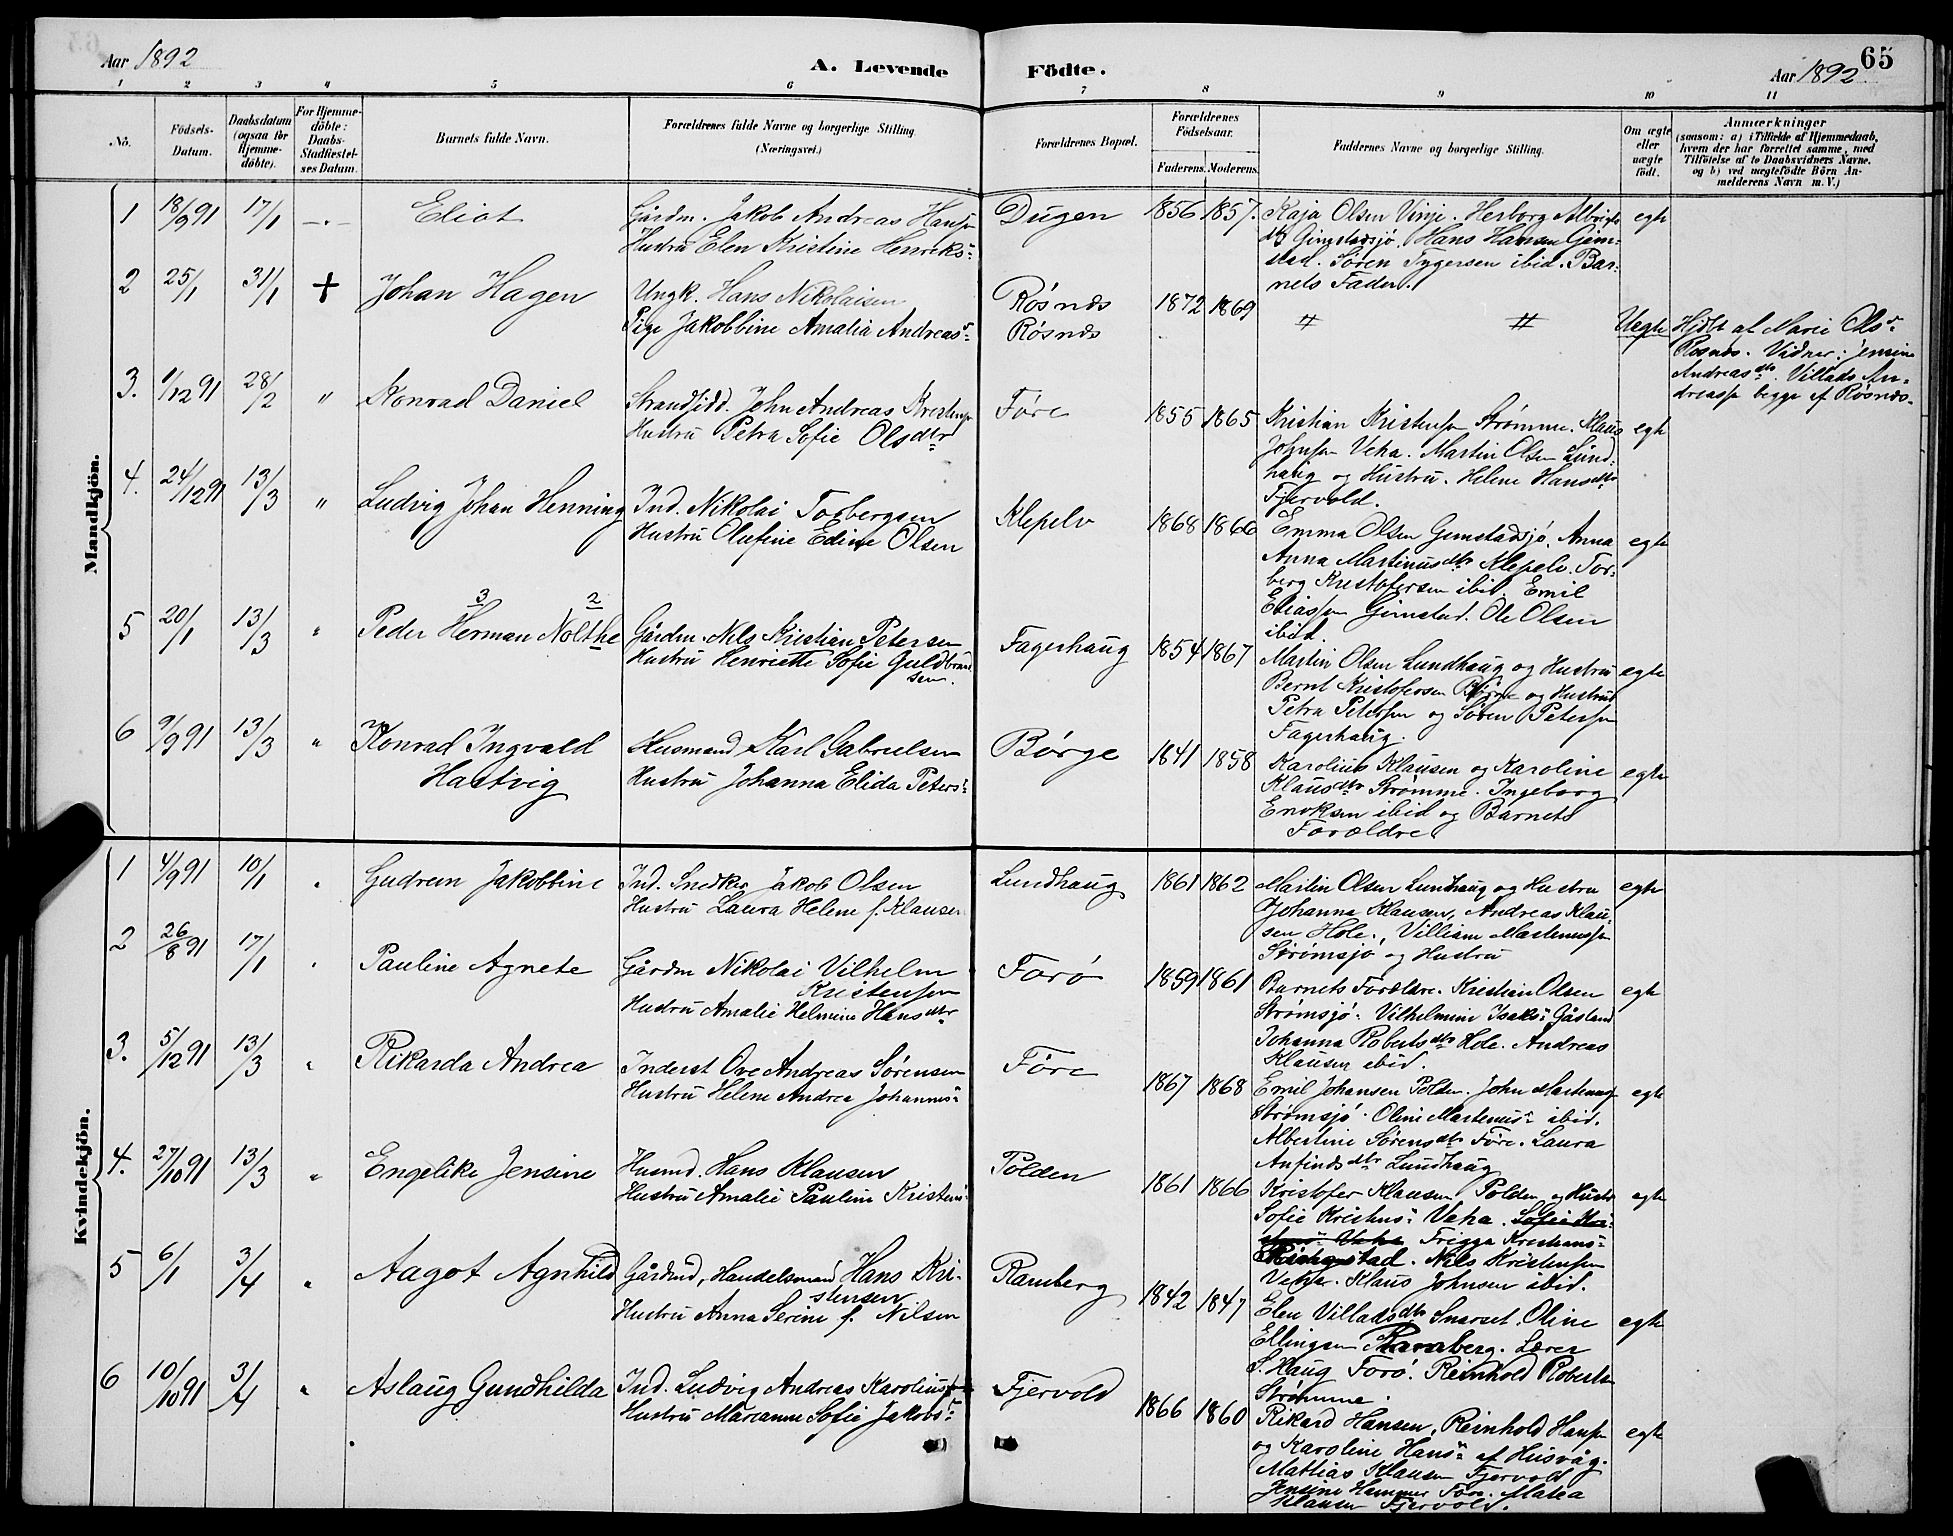 Aar 1892
A. Levende Födte.
65
Aar 1892
1 2 3 4 5 6 7 8 9 10 11
No.
Födsels-Datum.
Daabsdatum (ogsaa for Hjemme-döbte).
For Hjemme-döbte: Daabs-Stadfæstel-ses Datum.
Barnets fulde Navn.
Forældrenes fulde Navne og borgerlige Stilling. (Næringsvei.)
Forældrenes Bopæl.
Forældrenes Födselsaar.
Faderens. Moderens.
Faddernes Navne og borgerlige Stilling.
Om ægte eller uægte födt.
Anmærkninger
(saasom: a) i Tilfælde af Hjemmedaab,
hvem der har forrettet samme, med
Tilföielse af to Daabsvidners Navne.
og b) ved uægtefödte Börn An-
melderens Navn m. V.)
Mandkjön.
1 18/9 91 17/1 Eliot
Gårdm. Jakob Andreas Hansen
Hustru Elen Kristine Henriks:
Dugen 1856 1857.
Kaja Olsen Vinje. Herborg Albrigts
dtr Gimstadsjø. Hans Hansen Gim-
stad. Sören Tygersen ibid. Bar-
nets Fader.
egte
2 25/1 31/1 + Johan Hagen
Ungk. Hans Nikolaisen
Pige Jakobbine Amalia Andreas:
Røsnæs
Røsnæs
1872 1869
〃 〃
Uegte
Hjdbt af Marie Ols:
Røsnæs. Vidner: Jensine
Andreasdtr. Villads An-
dreassen begge af Røsnæs.
3. 1/12 91 28/2 〃 Konrad Daniel
Strandsidd. John Andreas Kristensen
Hustru Petra Sofie Olsdtr
Före 1855 1865
Kristian Kristensen Strømme. Klaus
Johnsen Veha. Martin Olsen Lund-
haug og Hustru. Helene Hansdtr
Fjervold.
egte
4. 24/12 91 13/3 〃 Ludvig Johan Henning
Ind. Nikolai Torbergsen
Hustru Olufine Edine Olsen
Klepelv 1868 1866
Emma Olsen Gimstadsjö. Anna
Anna Martinusdtr Klepelv. Tor-
berg Kristofersen ibid. Emil
Eliassen Gimstad. Ole Olsen
ibid.
egte
5 20/1 13/3 〃 3 2
Peder Herman Nolthe
Gårdm. Nils Kristian Petersen
Hustru Henriette Sofie Guldbran
sen.
Fagerhaug 1854 1867
Martin Olsen Lundhaug og Hustru
Bernt Kristofersen Børge og Hustru
Petra Petersen og Sören Petersen
Fagerhaug.
egte
6 9/9 91 13/3 〃 Konrad Ingvald
Hartvig
Husmand Karl Gabrielsen
Hustru Johanna Elida Peters:
Børge 1841 1858
Karolius Klausen og Karoline
Klausdtr Strømme. Ingeborg
Enoksen ibid og Barnets
Forældre.
egte
Kvindekjön.
1 4/9 91 10/1 Gudrun Jakobbine
Ind. Snedker Jakob Olsen
Hustru Laura Helene f. Klausen
Lundhaug 1861 1862
Martin Olsen Lundhaug og Hustru
Johanna Klausen, Andreas Klau-
sen Hole., Villiam Martinussen
Strømsjø og Hustru
egte
2 26/8 91 17/1 Pauline Agnete
Gårdm Nikolai Vilhelm
Kristensen
Hustru Amalie Helmine Hansdtr
Forö 1859 1861
Barnets Forældre. Kristian Olsen
Strømsjö. Vilhelmine Isaks: Gåsland
Johanna Robertsdtr Hole. Andreas
Klausen ibid.
egte
3. 5/12 91 13/3 Rikarda Andrea
Inderst Ove Andreas Sørensen
Hustru Helene Andrea Johannes:
Føre 1867 1868
Emil Johansen Polden. John Martinussen
Strømsjö. Oline Martinus: ibid.
Albertine Sørensdtr Føre. Laura
Anfindsdtr Lundhaug
egte
4. 27/10 91 13/3 〃 Engelike Jensine
Husmd. Hans Klausen
Hustru Amalie Pauline Kristens:
Polden 1861 1866
Kristofer Klausen Polden og Hustr
Sofie Kristens: Veha. Sofie Kri-
stens: Veha Frigga Kristians:
Ringstad. Nils Kristensen
Veha. Klaus Johnsen ibid.
egte
5 6/1 3/4 〃 Aagot Agnhild
Gårdmd, Handelsmand Hans Kri-
stensen
Hustru Anna Serine f. Nilsen
Ramberg 1842 1847
Elen Villadsdtr Snarset. Oline
Ellingsen Ramberg. Lærer
S. Haug Forö. Reinhold Roberts
Strømme.
egte
6 10/10 91 3/4 〃 Aslaug Gundhilda
Ind. Ludvig Andreas Karoliussen
Hustru Marianne Sofie Jakobs:
Fjervold 1866 1860
Rikard Hansen, Reinhold Hansen
og Karoline Hans: af Husvåg.
Mattias Klausen Fjervold
Jensine Hammer Føre. Matea
Klausen Fjervold.
egte